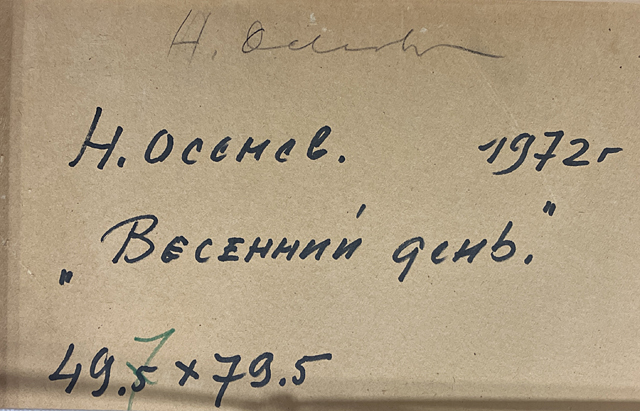 Н. Осенев
Н. Осенев. 1972г
„Весенний день."
49.5 x 79.5